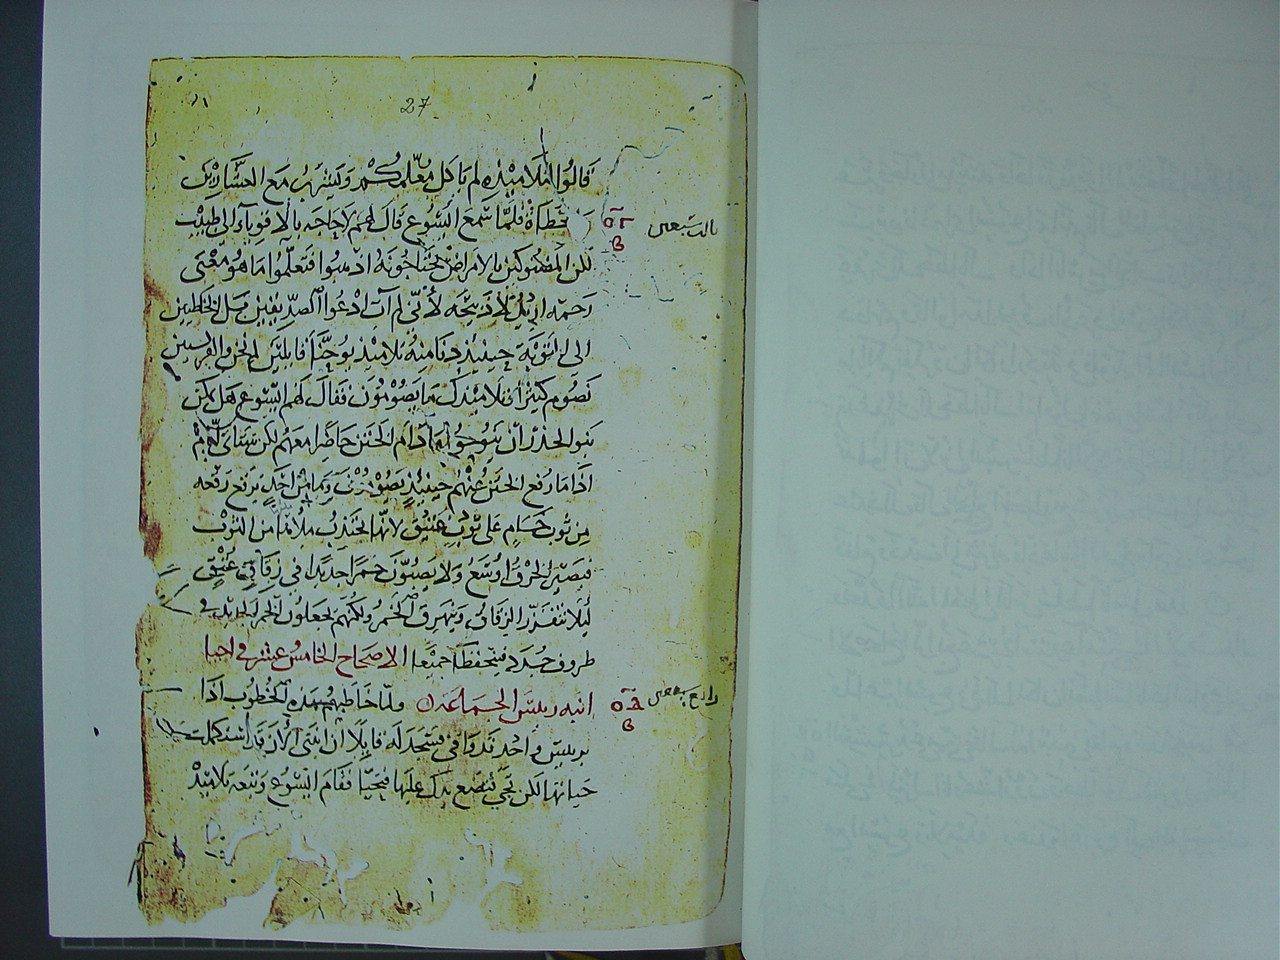 27
قالوا لتلاميذه لم ياكل معلمكم ويشرب مع العشارين
والخطاة فلما سمع ايسوع قال لهم لا حاجه بالاقوياء الى طبيب
لكن المضنوكين بالامراض يحتاجونه اذهبوا فتعلموا ما هو معنى
رحمه اريد لا ذبيحه لأنى لم آت ادعوا الصديقين بل الخطيين
الى التوبة حينيذ دنا منه تلاميذ يوحنا قايلين نحن والفريسين
نصوم كثيرا وتلاميذك ما يصومون فقال لهم ايسوع هل يمكن
بنو الخدر ان ينوحوا ما دام الختن حاضرا معهم لكن ستاتى ايام
اذا ما رفع الختن عنهم حينيذ يصومون وما من احد يرقع رقعه
من ثوب خام على ثوب عتيق لانها تجذب ملاها من الثوب
فيصير الخرق اوسع ولا يصبون خمرا جديدا فى زقاق عتق
ليلا تتفزر الزقاق ويتهرق الخمر ولكنهم يجعلون الخمر الجديد فى
ظروف جدد فيتحفظا جميعا الاصحاح الخامس عشر فى احيا
ابنه رييس الجماعه ولما خاطبهم بهذه الخطوب اذا
برييس واحد قد وافى فسجد له قايلا ان ابنتى الآن قد استكملت
حياتها لكن تجى فتضع يدك عليها فتحيا فقام ايسوع وتبعه تلاميذه